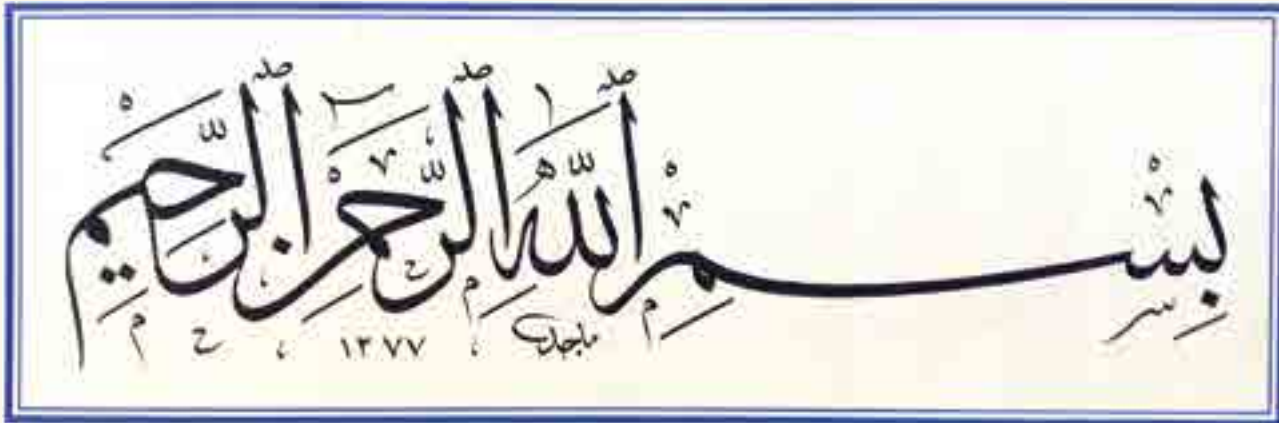 بِسْمِ اللَّهِ الرَّحْمٰنِ الرَّحِيمِ
ماجد ١٣٧٧